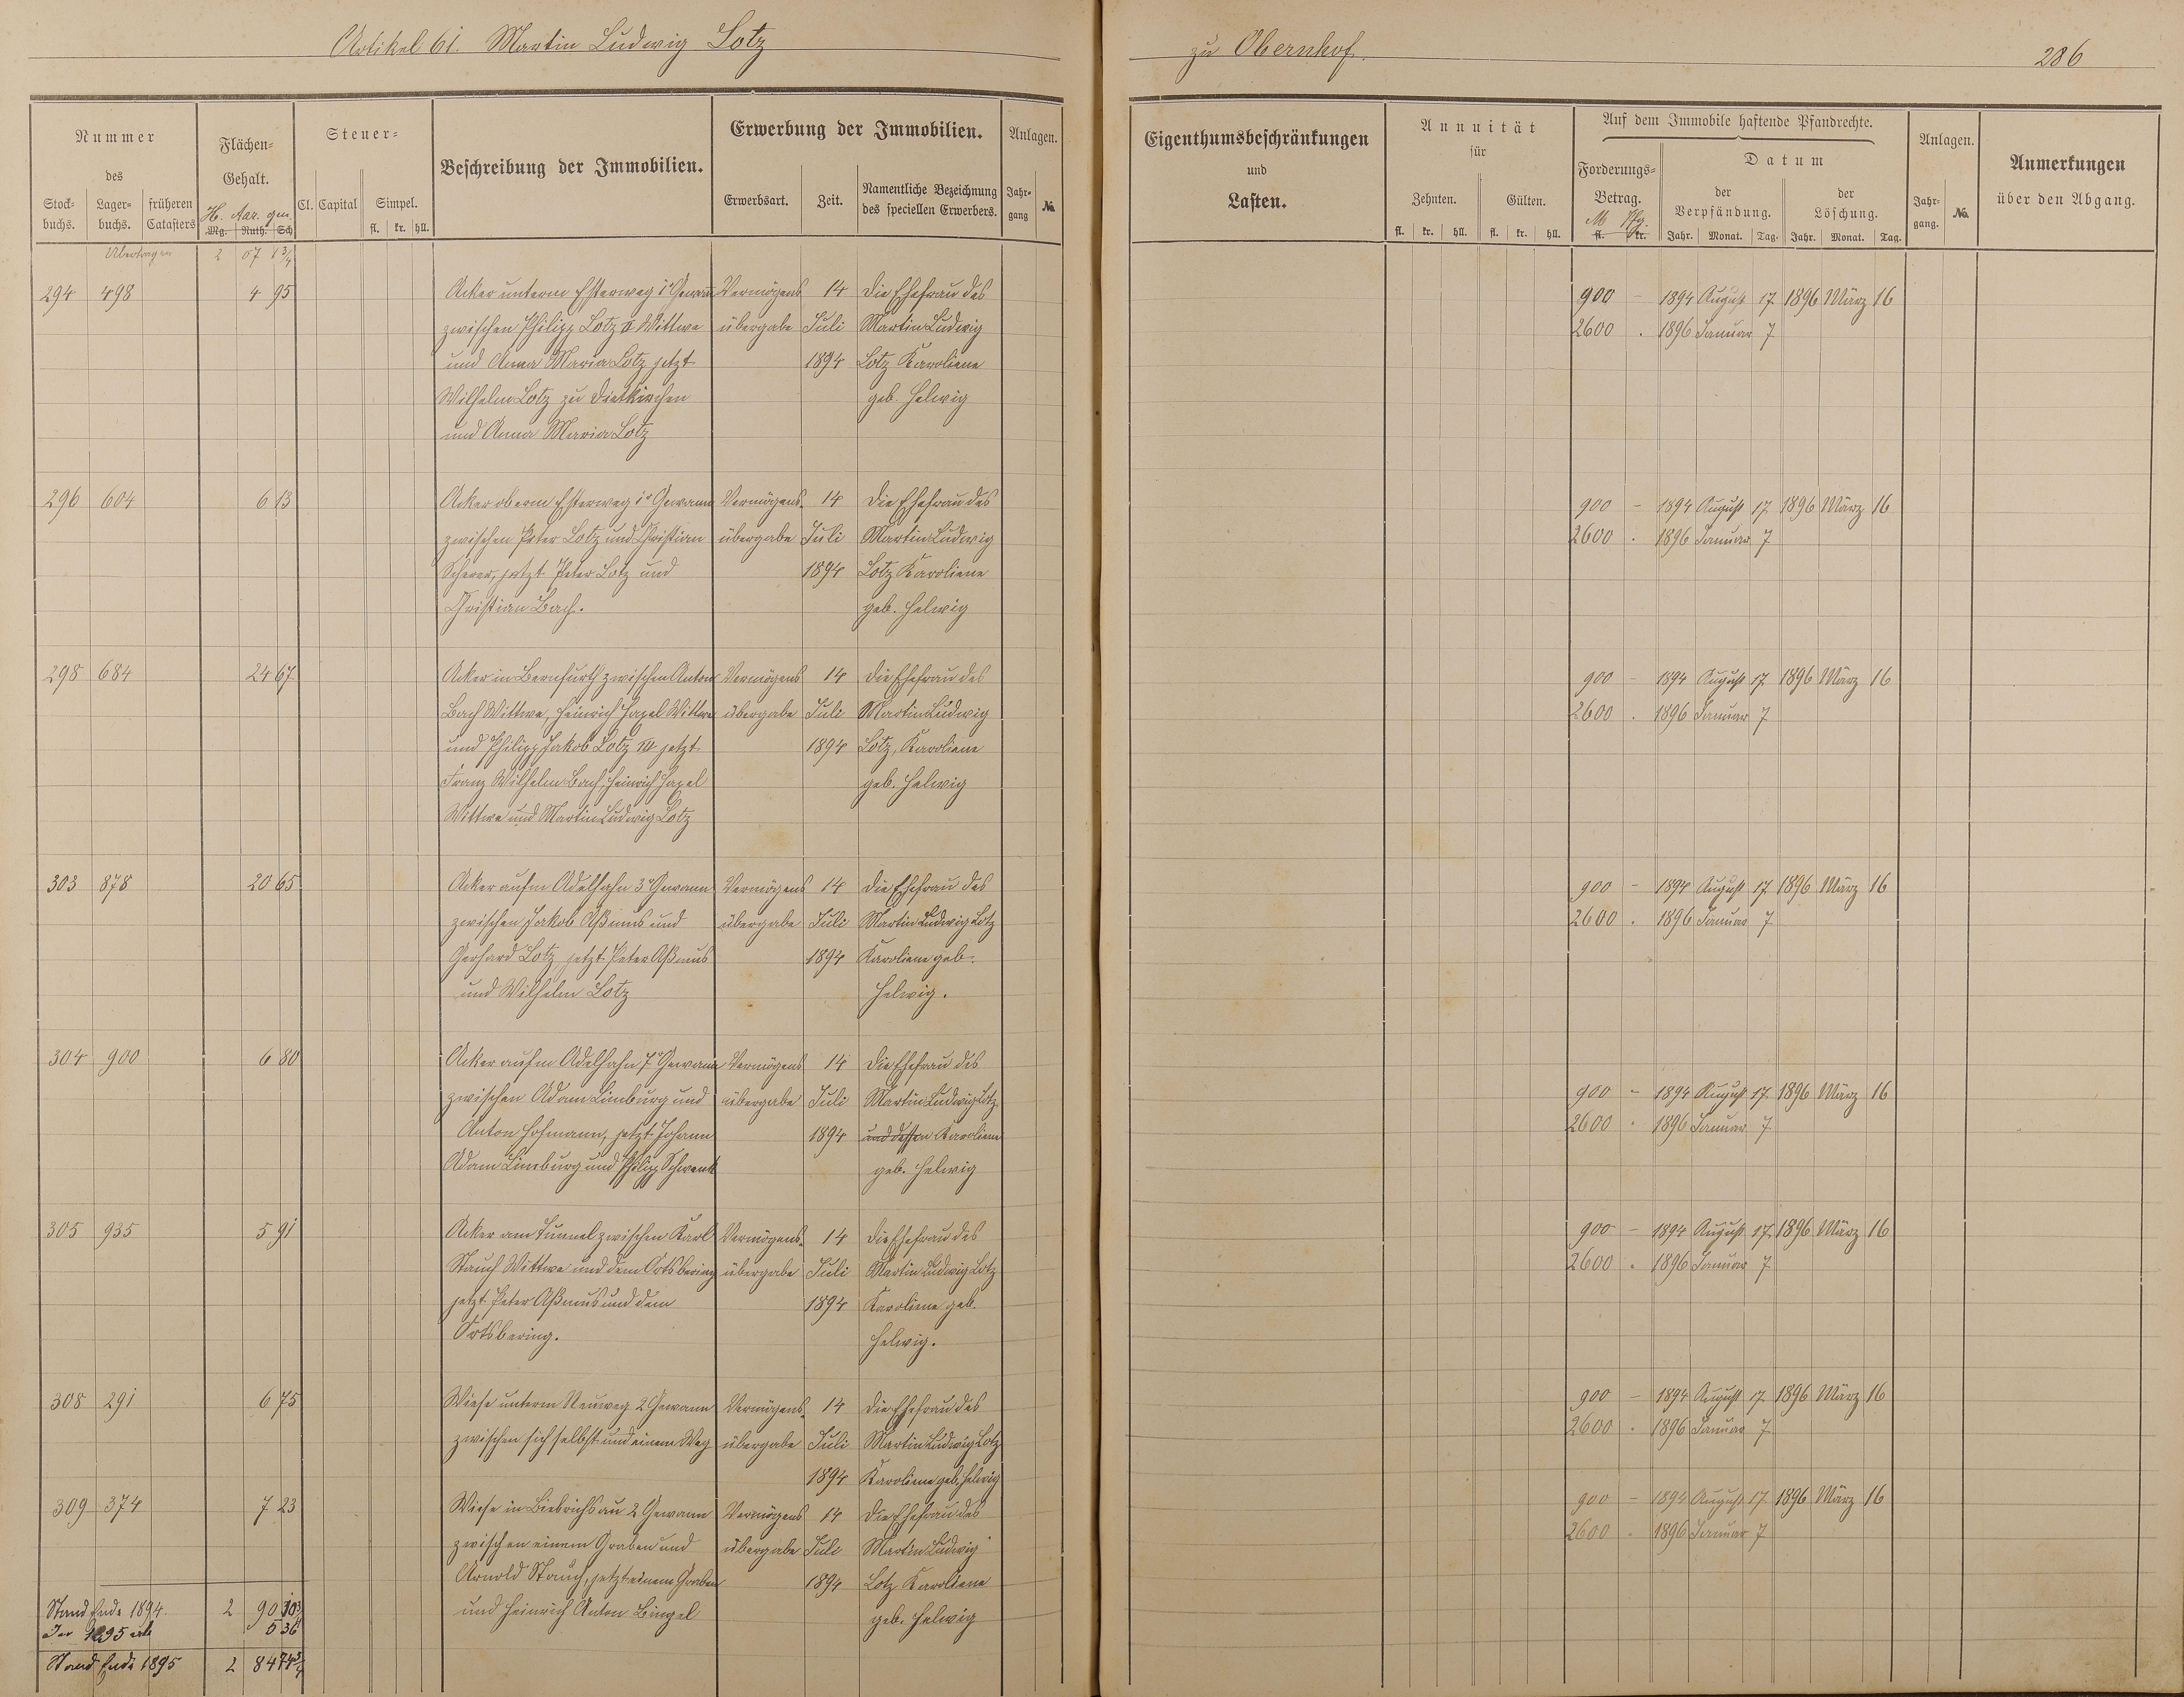 Artikel 61. Martin Ludwig Lotz
zu Obernhof.
286
Nummer
des
Stock-
buchs.
Lager-
buchs.
früheren
Catasters
Flächen-
Gehalt.
H. Aar. qm.
Mg. Ruth. Sch
Steuer-
Cl. Capital
Simpel.
fl. kr. hll.
Beschreibung der Immobilien.
Erwerbung der Immobilien.
Erwerbsart.
Zeit.
Namentliche Bezeichnung
des speciellen Erwerbers.
Anlagen.
Jahr-
gang
No.
Eigenthumsbeschränkungen
und
Lasten.
Annuität
für
Zehnten.
Gülten.
fl. kr. hll. fl. kr. hll.
Auf dem Immobile haftende Pfandrechte.
Forderungs-
Betrag.
M Pfg.
fl. kr.
Datum
der
Verpfändung.
der
Löschung.
Jahr. Monat. Tag. Jahr. Monat. Tag.
Anlagen.
Jahr-
gang.
No.
Anmerkungen
über den Abgang.
Übertragen 2 07 1 3/4
294 498 4 95 Acker unterm Esterweg 1r Gewann Vermögens 14 die Ehefrau des 900 – 1894 August 17 1896 März 16
zwischen Philipp Lotz II Wittwe übergabe Juli Martin Ludwig 2600 . 1896 Januar 7
und Anna Maria Lotz jetzt 1894 Lotz Karoliene
Wilhelm Lotz zu Dietkirchen geb. Helwig
und Anna Maria Lotz
296 604 6 13 Acker oberm Esterweg 1r Gewann Vermögens- 14 die Ehefrau des 900 – 1894 August 17 1896 März 16
zwischen Peter Lotz und Christian übergabe Juli Martin Ludwig 2600 . 1896 Januar 7
jetzt Peter Lotz und 1894 Lotz Karoliene
Christian Bach. geb. Helwig
298 684 24 67 Acker in Bernfurth zwischen Anton Vermögens 14 die Ehefrau des 900 – 1894 August 17 1896 März 16
Bach Wittwe, Heinrich Hagel Wittwe übergabe Juli Martin Ludwig 2600 . 1896 Januar 7
und Philipp Jakob Lotz III jetzt 1894 Lotz, Karoliene
Franz Wilhelm Bach, Heinrich Hagel geb. Helwig
Wittwe und Martin Ludwig Lotz
303 878 20 65 Acker aufm Adelhahn 3r Gewann Vermögens 14 die Ehefrau des 900 – 1894 August 17 1896 März 16
zwischen Jakob Aßmus und übergabe Juli Martin Ludwig Lotz 2600 . 1896 Januar 7
Gerhard Lotz jetzt Peter Aßmus 1894 Karoliene geb.
und Wilhelm Lotz Helwig.
304 900 6 80 Acker aufm Adelhahn 7r Gewann Vermögens 14 die Ehefrau des
zwischen Adam Limburg und übergabe Juli Martin Ludwig Lotz 900 – 1894 August 17. 1896 März 16
Anton Hofmann, jetzt Johann 1894 und dessen Karoliene 2600 . 1896 Januar 7
Adam Limburg und Philipp Schwenk geb. Helwig
305 935 5 91 Acker am Tunnel zwischen Karl Vermögens- 14 die Ehefrau des 900 – 1894 August 17. 1896 März 16
Stauch Wittwe und dem Ortsbering übergabe Juli Martin Ludwig Lotz 2600 . 1896 Januar 7
jetzt Peter Aßmus und dem 1894 Karoliene geb.
Ortsbering. Helwig.
308 291 6 75 Wiese unterm Neuweg 2 Gewann Vermögens- 14 die Ehefrau des 900 – 1894 August 17. 1896 März 16
zwischen sich selbst und einem Weg übergabe Juli Martin Ludwig Lotz 2600 . 1896 Januar 7
1894 Karoliene geb. Helwig
309 374 7 23 Wiese in Biebrichsau 2 Gewann Vermögens 14 die Ehefrau des 900 – 1894 August 17. 1896 März 16
zwischen einem Graben und übergabe Juli Martin Ludwig 2600 . 1896 Januar 7
Arnold Stauch, jetzt einem Graben 1894 Lotz Karoliene
und Heinrich Anton Bingel geb. Helwig
Stand Ende 1894. 2 90 10 3/4
1895 5 36
Stand Ende 1895 2 84 74 3/4